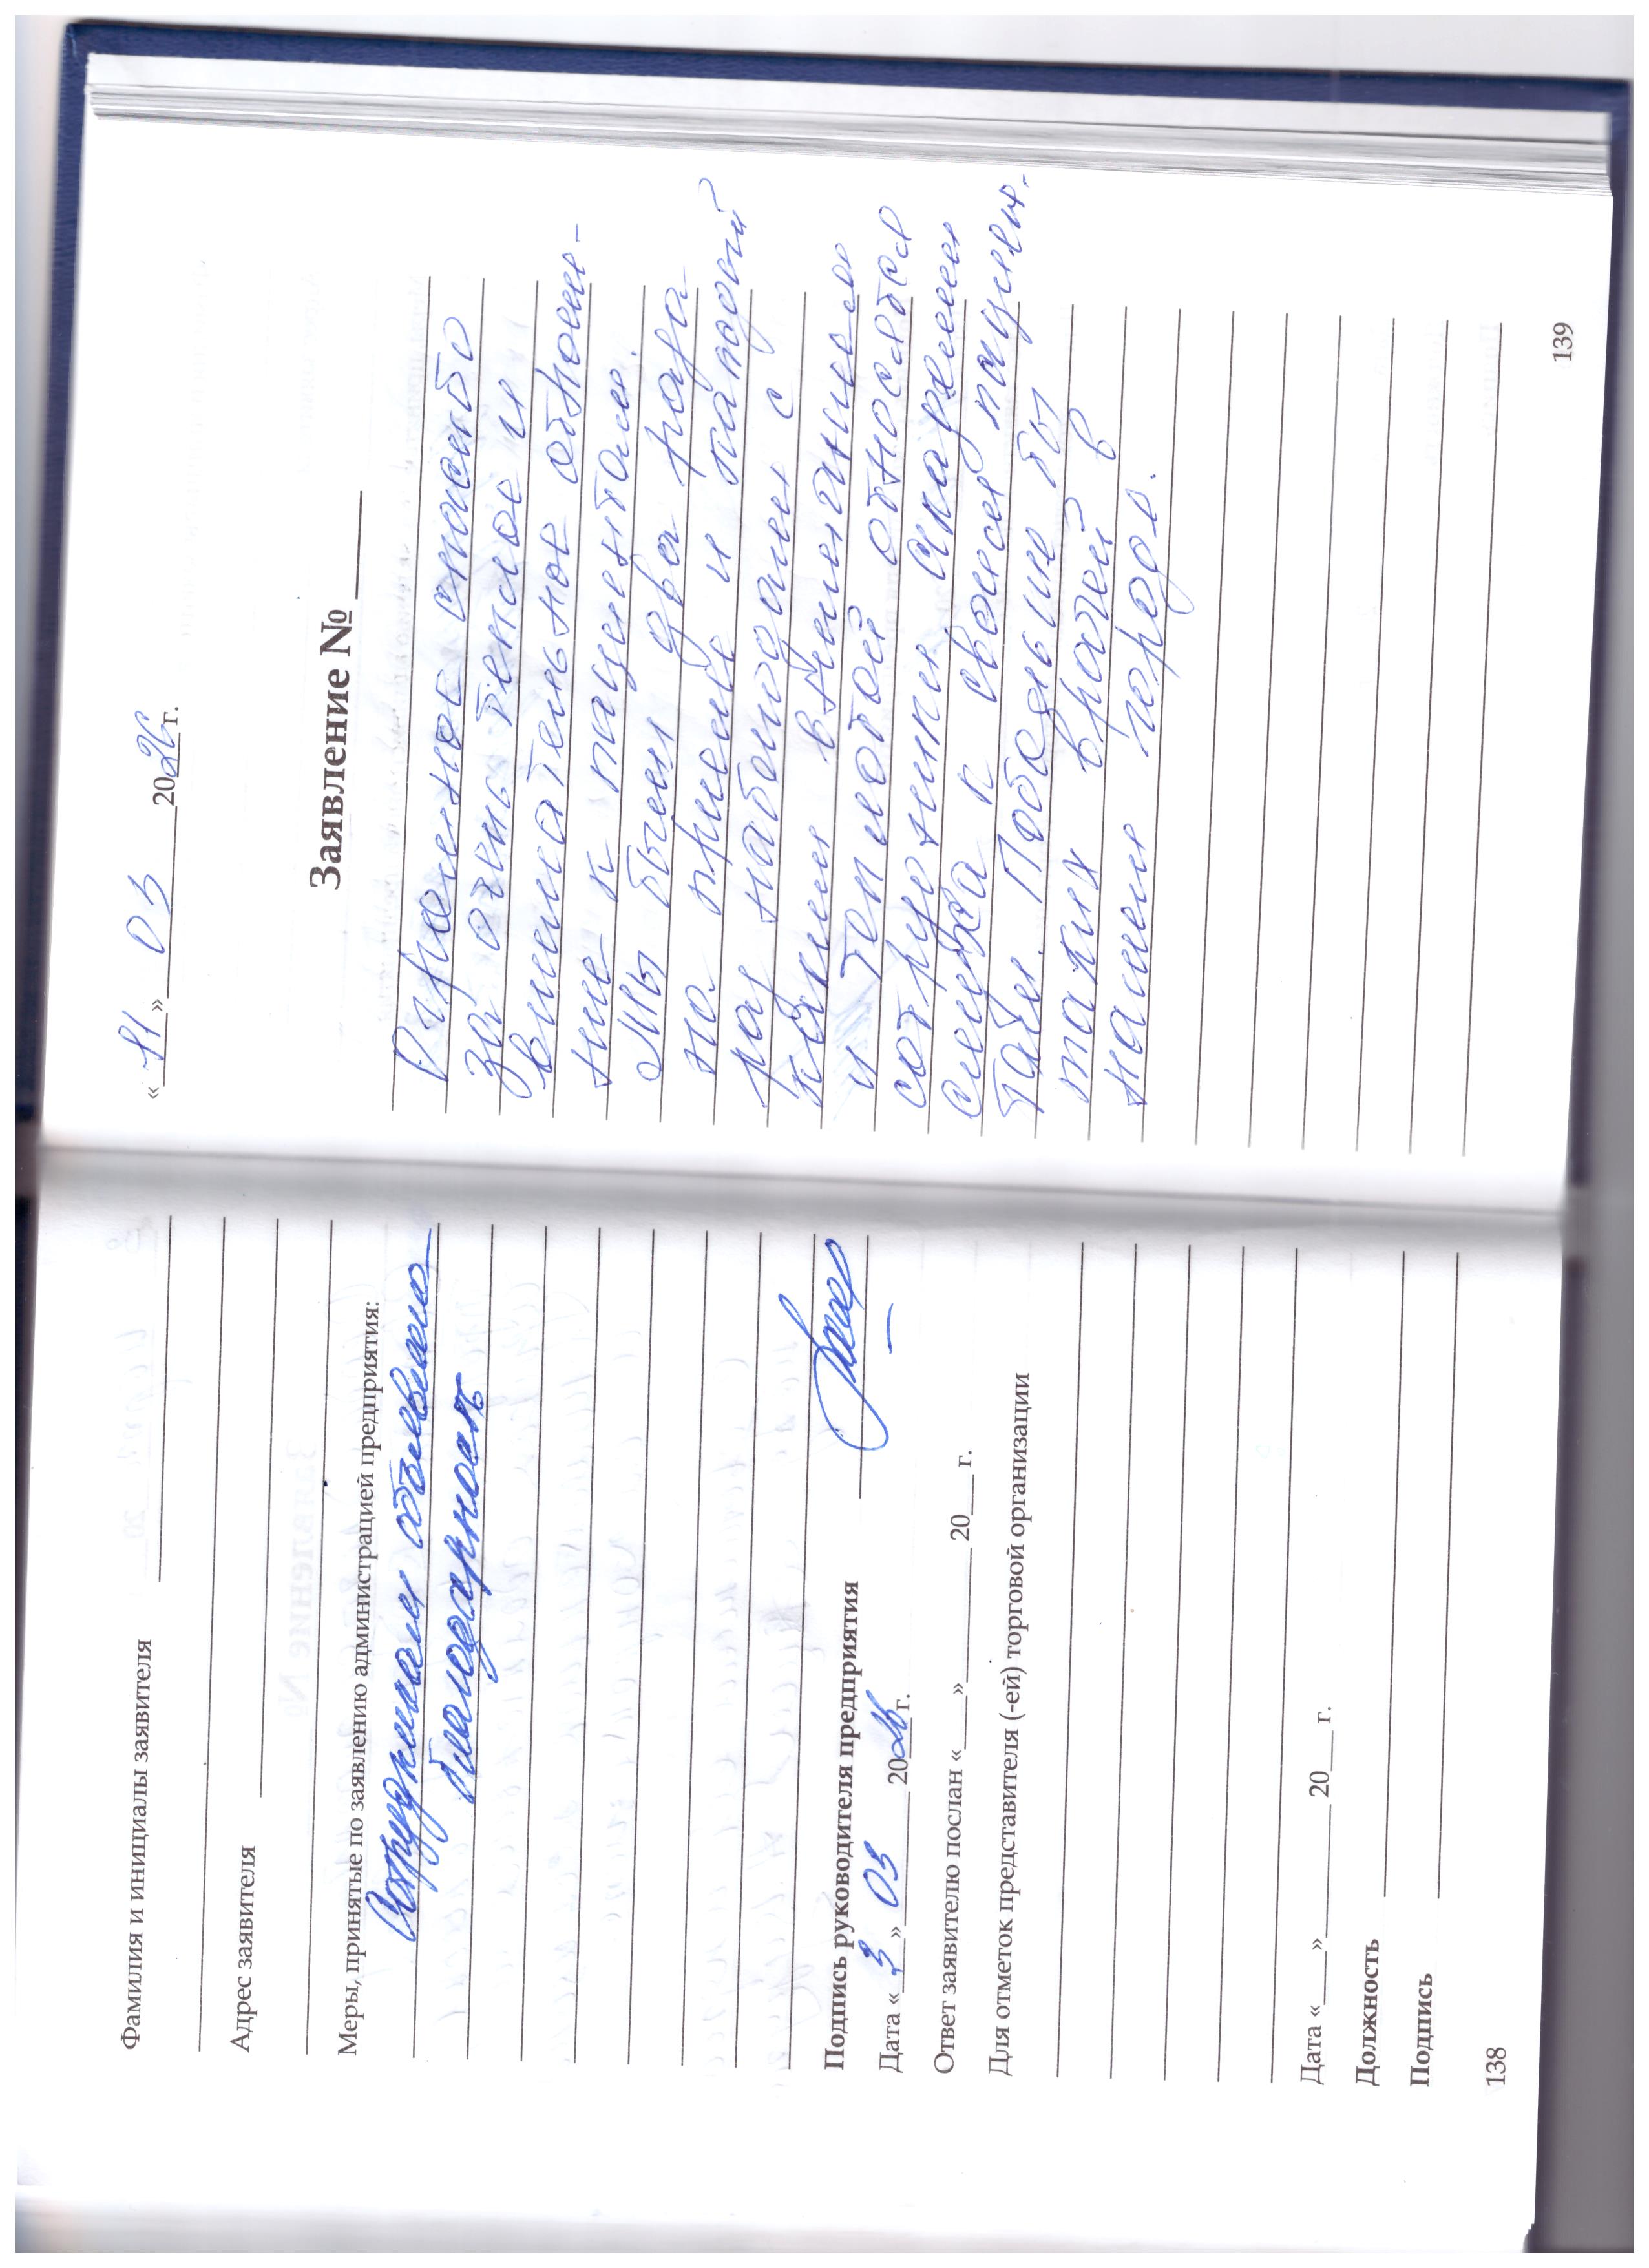 Фамилия и инициалы заявителя
Адрес заявителя
Меры, принятые по заявлению администрацией предприятия:
Сотрудникам объявлена
благодарность
Подпись руководителя предприятия
Дата «3» 03 2026 г.
Ответ заявителю послан «___» ________ 20___ г.
Для отметок представителя (-ей) торговой организации
Дата «___» ________ 20___ г.
Должность
Подпись
138
«11» 03 2026 г.
Заявление № ____
Огромное спасибо
за очень теплое и
внимательное отноше-
ние к пациентам.
Мы были два раза
на приеме и каждый
раз наблюдали с
каким вниманием
и теплотой относятся
сотрудники
к своим пациен-
там. Побольше бы
таких врачей в
нашем городе.
139